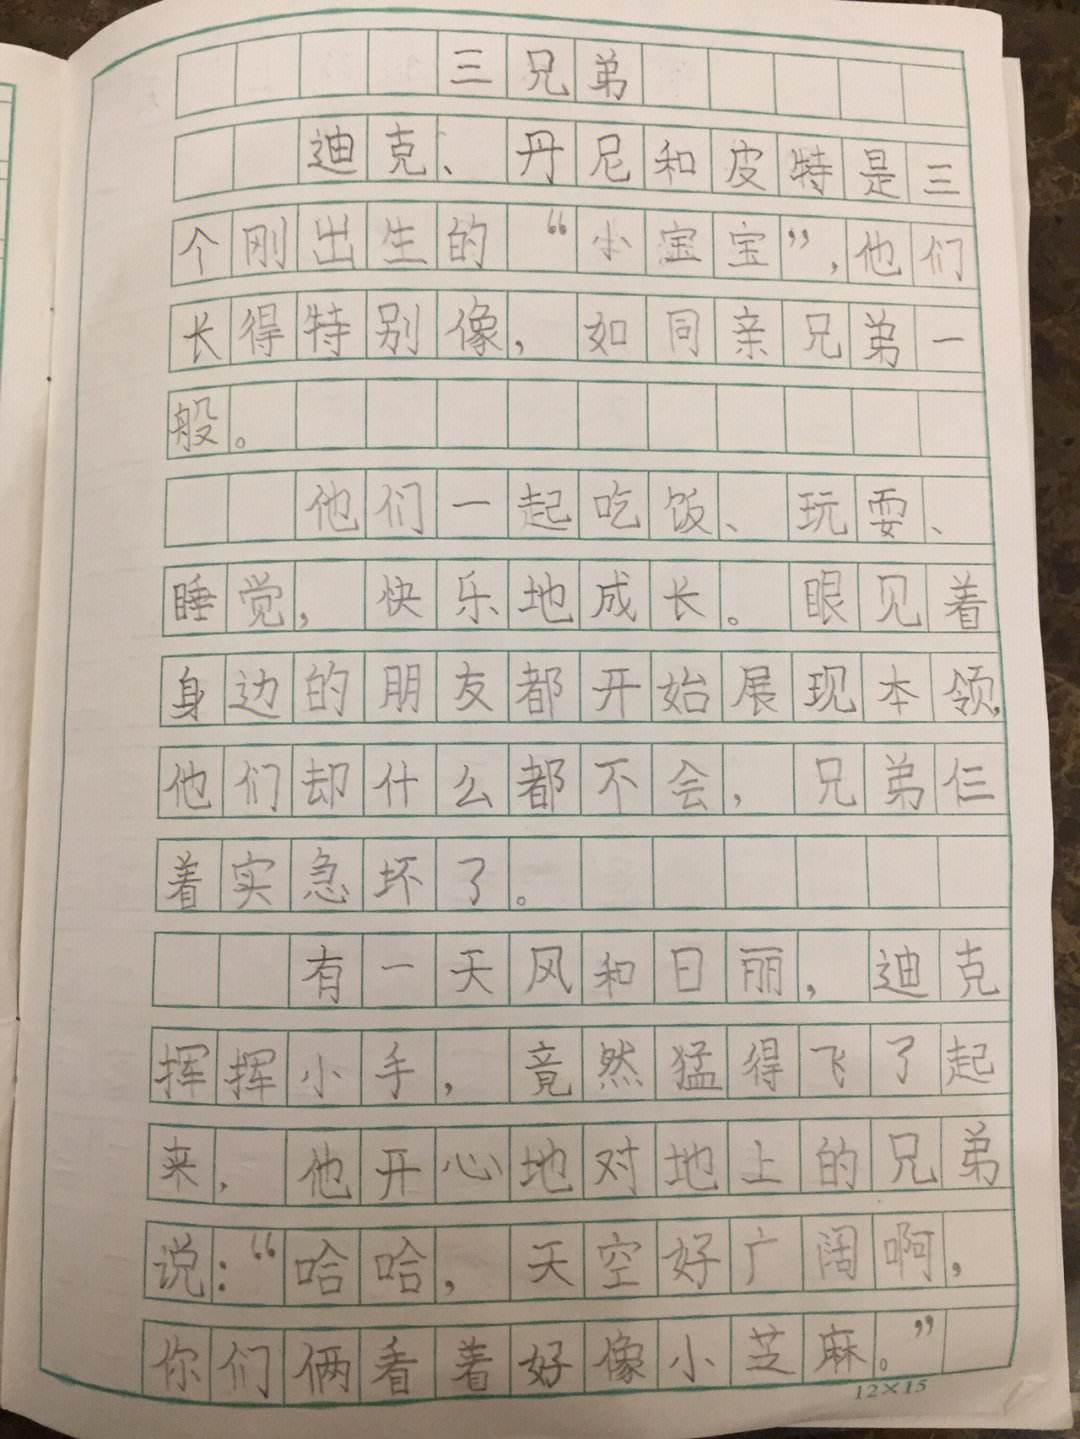 三兄弟
迪克、丹尼和皮特是三
个刚出生的“小宝宝”,他们
长得特别像，如同亲兄弟一
般。
他们一起吃饭、玩耍、
睡觉，快乐地成长。眼见着
身边的朋友都开始展现本领,
他们却什么都不会，兄弟仨
着实急坏了。
有一天风和日丽，迪克
挥挥小手，竟然猛得飞了起
来，他开心地对地上的兄弟
说：“哈哈，天空好广阔啊，
你们俩看着好像小芝麻。”
12×15